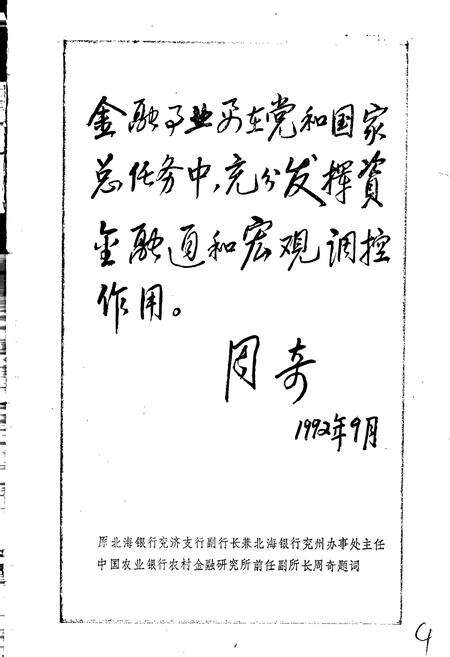 金融事业要在党和国家
总任务中,充分发挥资
金融通和宏观调控
作用。
周奇
1992年9月
原北海银行兖济支行副行长兼北海银行兖州办事处主任
中国农业银行农村金融研究所前任副所长周奇题词
4